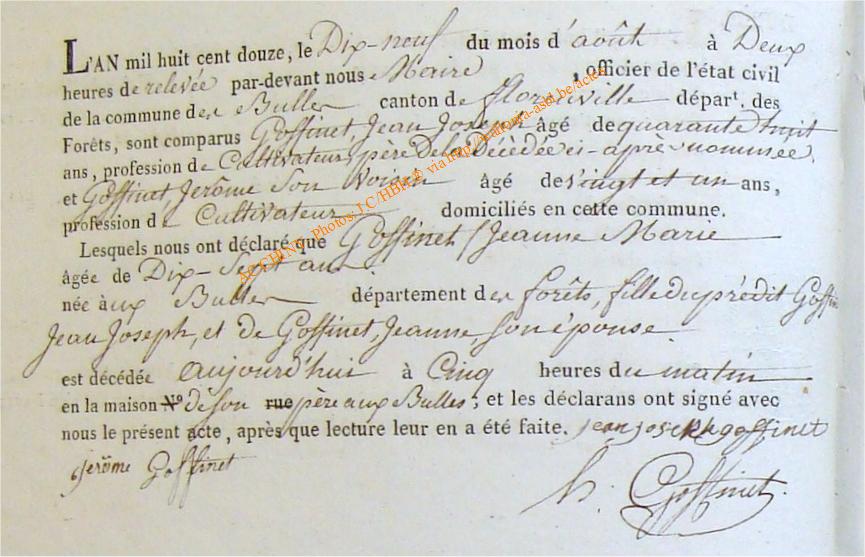 L'AN mil huit cent douze, le Dix-neuf du mois d'août à Deux
heures de relevée par-devant nous Maire, officier de l'état civil
de la commune des Bulles canton de florenville départ. des
Forêts, sont comparus Goffinet, Jean Joseph âgé de quarante huit
ans, profession de Cultivateur, père de la Décédée ci-après nommée,
et Goffinet Jerôme Son Voisin âgé de vingt et un ans,
profession de Cultivateur domiciliés en cette commune.
Lesquels nous ont déclaré que Goffinet, Jeanne Marie
âgée de Dix-Sept ans.
née aux Bulles département des forêts, fille du prédit Goffinet
Jean Joseph, et de Goffinet, Jeanne, Son épouse.
est décédée aujourd'hui à Cinq heures du matin
en la maison N.º de son rue père aux Bulles; et les déclarans ont signé avec
nous le présent acte, après que lecture leur en a été faite. jean joseph goffinet
jerôme Goffinet
h. Goffinet.